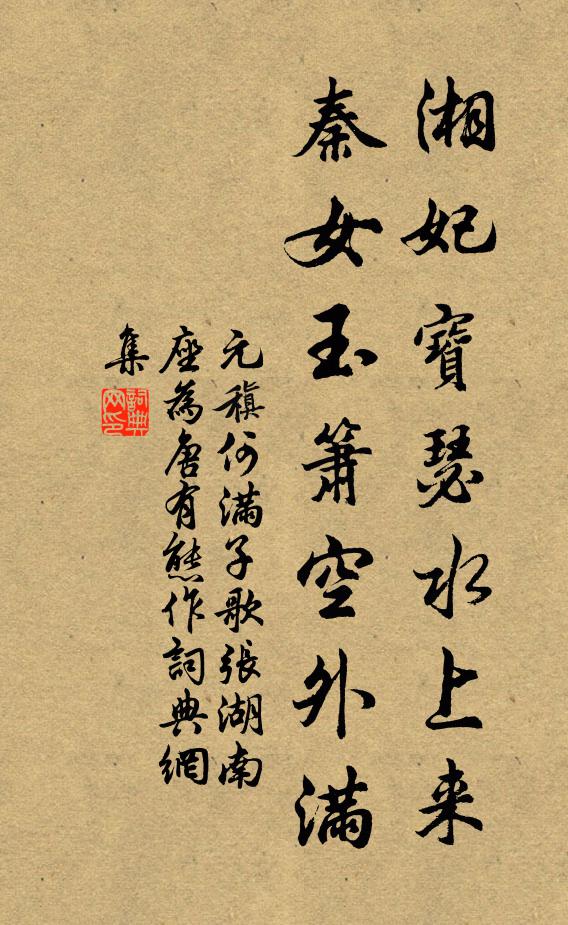 湘妃寶瑟水上来
秦女玉簫空外滿
元稹何滿子歌張湖南
座為唐有熊作詞典網
集
詞典
网印